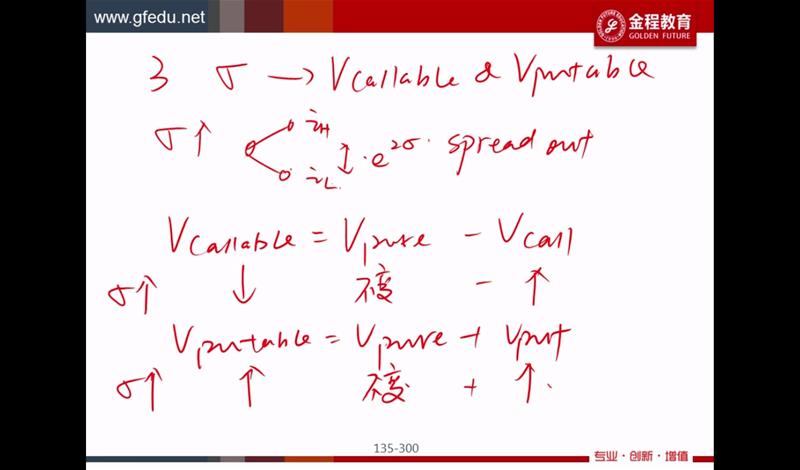 www.gfedu.net
金程教育
GOLDEN FUTURE
3 σ → Vcallable & Vputable
σ↑ iH iL ·e^2σ· spread out
Vcallable = Vpure - Vcall
σ↑ ↓ 不变 - ↑
Vputable = Vpure + Vput
σ↑ ↑ 不变 + ↑
135-300
专业·创新·增值